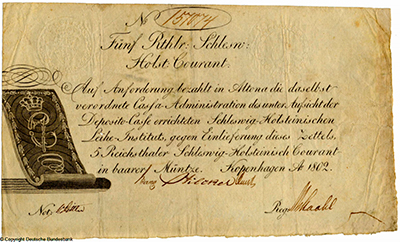 No 157874
Fünf Rthlr: Schlesw:
Holst Courant.
Auf Anforderung bezahlt in Altona die daselbst
verordnete Cassa-Administration des unter Aufsicht der
Deposito-Casse errichteten Schleswig-Holsteinischen
Leihe-Instituts, gegen Einlieferung dieses Zettels.
5 Reichsthaler Schleswig-Holsteinisch Courant
in baarer Müntze. Kopenhagen Ao 1802.
Not:
Regr
© Copyright Deutsche Bundesbank